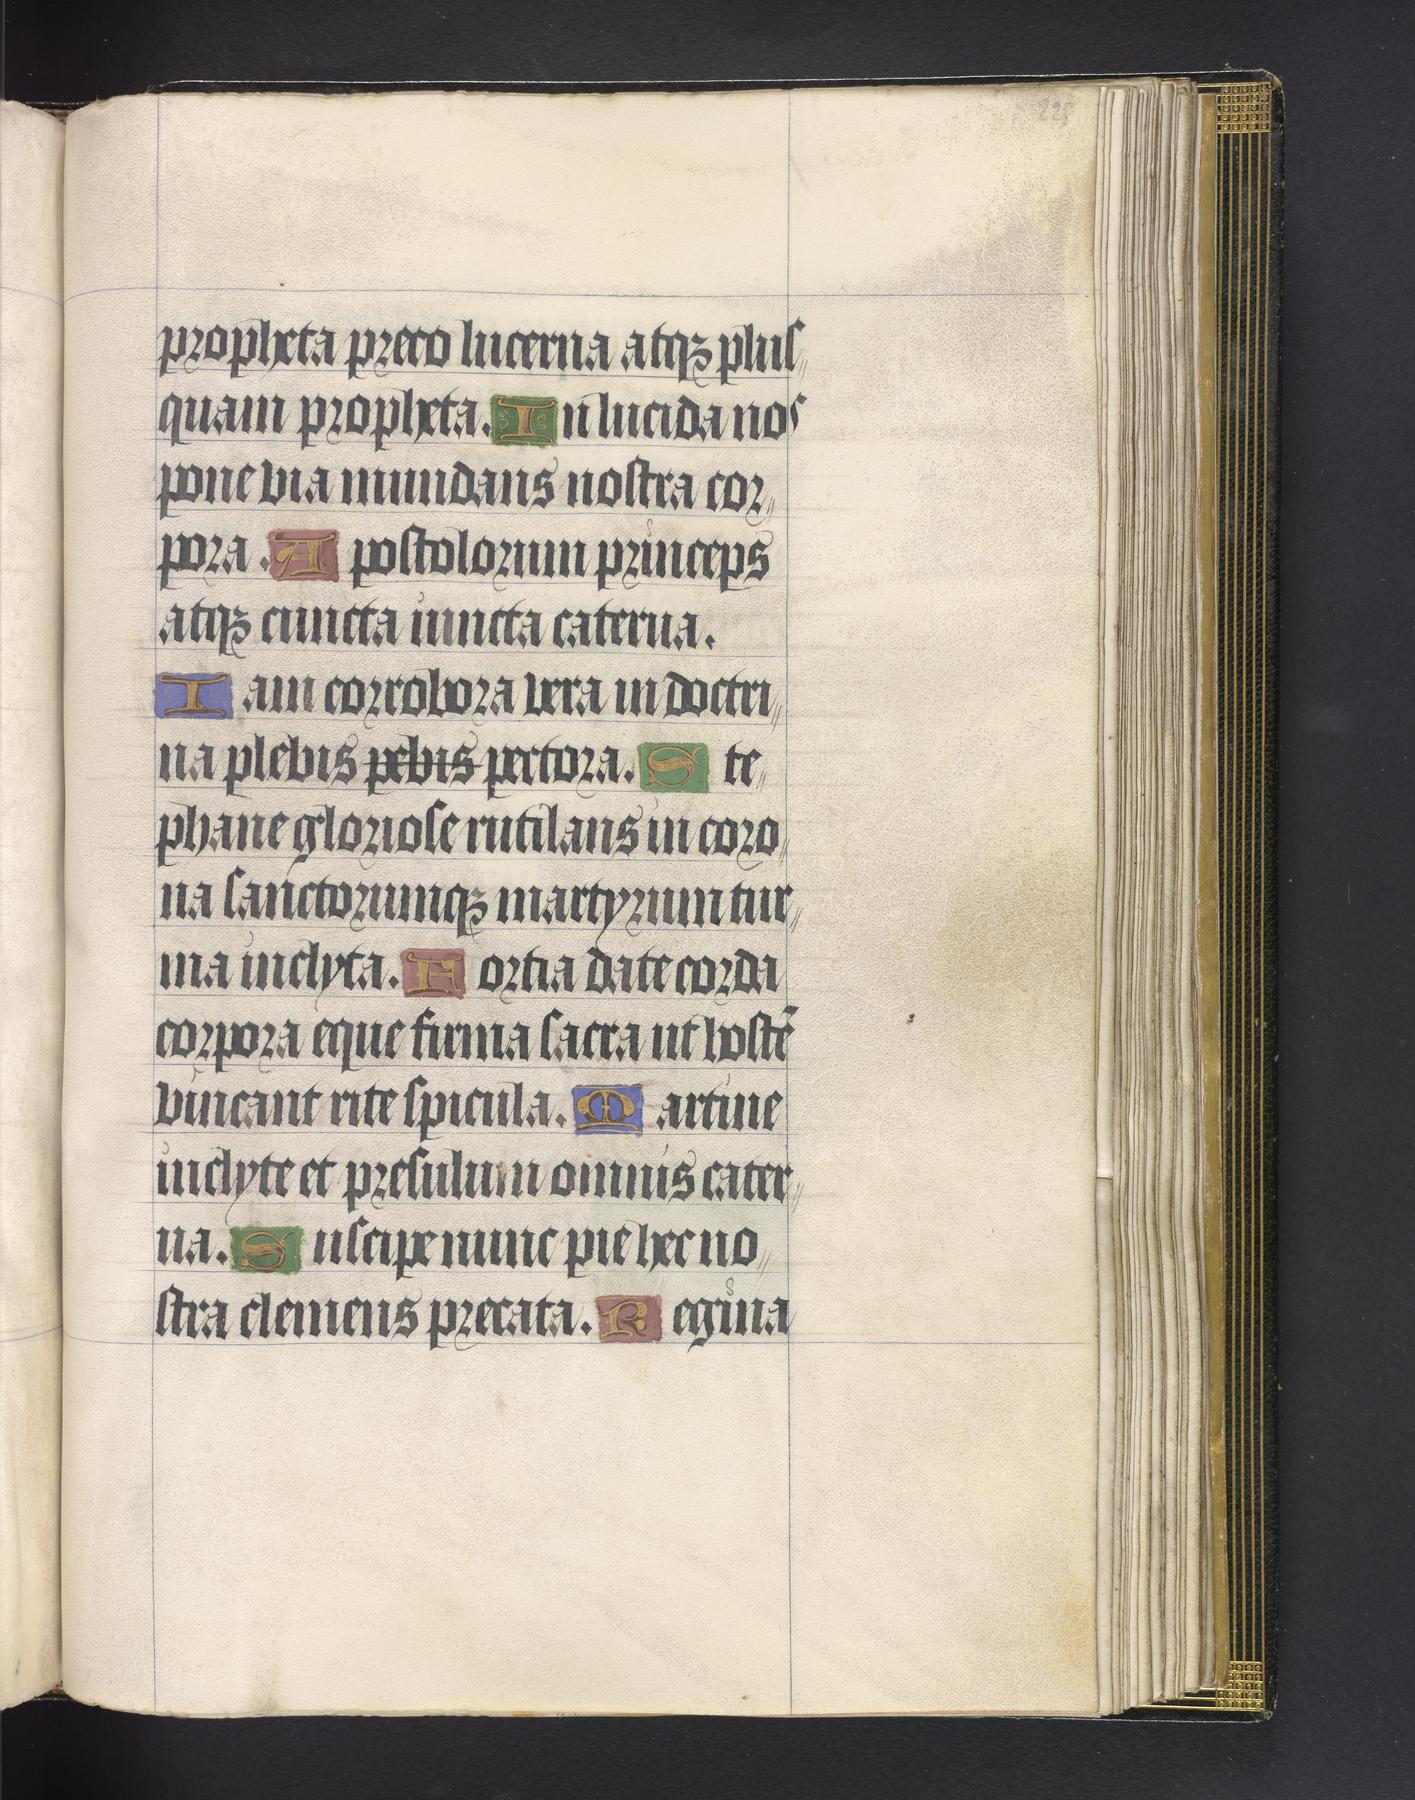 225
propheta preco lucerna atqꝫ pluſ〃
quam propheta. In lucida nos
pone via mundans noſtra cor〃
pora. Apoſtolorum princeps
atqꝫ cuncta iuncta caterua.
Iam corrobora vera in doctri〃
na plebis pebis pectora. Ste〃
phane glorioſe rutilans in coro〃
na ſanctorumqꝫ martyrum tur〃
ma inclyta. Fortia date corda
corpora eque firma ſacra ut hoſtē
vincant rite ſpicula. Martine
inclyte et preſulum omnis cater〃
ua. Suſcipe nunc pie hec no〃
ſtra clemens precata. Regina